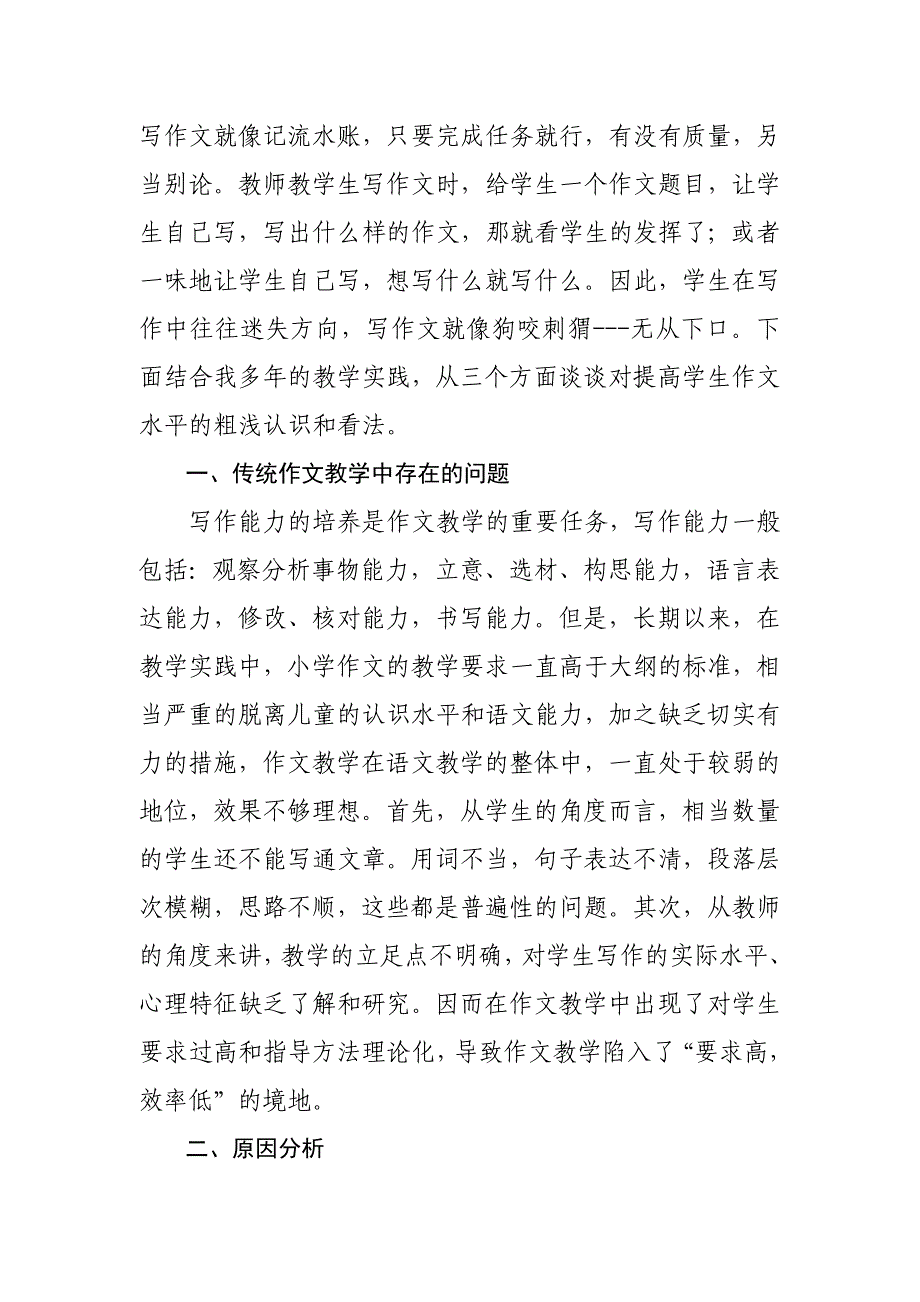 写作文就像记流水账，只要完成任务就行，有没有质量，另
当别论。教师教学生写作文时，给学生一个作文题目，让学
生自己写，写出什么样的作文，那就看学生的发挥了；或者
一味地让学生自己写，想写什么就写什么。因此，学生在写
作中往往迷失方向，写作文就像狗咬刺猬---无从下口。下
面结合我多年的教学实践，从三个方面谈谈对提高学生作文
水平的粗浅认识和看法。
一、传统作文教学中存在的问题
写作能力的培养是作文教学的重要任务，写作能力一般
包括：观察分析事物能力，立意、选材、构思能力，语言表
达能力，修改、核对能力，书写能力。但是，长期以来，在
教学实践中，小学作文的教学要求一直高于大纲的标准，相
当严重的脱离儿童的认识水平和语文能力，加之缺乏切实有
力的措施，作文教学在语文教学的整体中，一直处于较弱的
地位，效果不够理想。首先，从学生的角度而言，相当数量
的学生还不能写通文章。用词不当，句子表达不清，段落层
次模糊，思路不顺，这些都是普遍性的问题。其次，从教师
的角度来讲，教学的立足点不明确，对学生写作的实际水平、
心理特征缺乏了解和研究。因而在作文教学中出现了对学生
要求过高和指导方法理论化，导致作文教学陷入了“要求高，
效率低”的境地。
二、原因分析